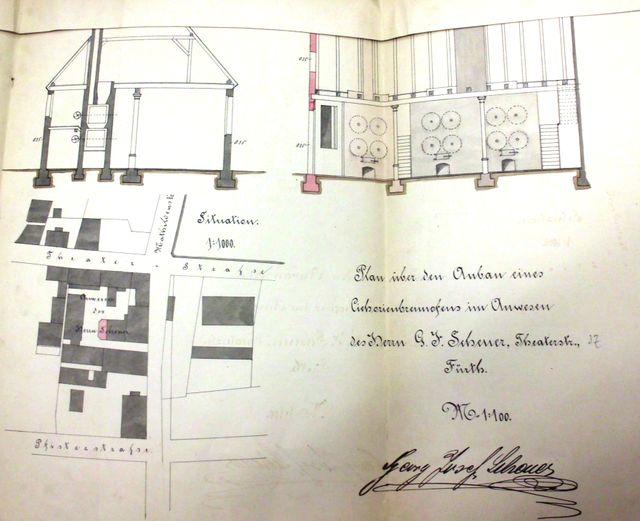 Situation.
1:1000.
Mathildenstr.
Theater-Strafse
Anwesen
des
Herrn Scheuer
Pfisterstrafse
Plan über den Anbau eines
Cichorienbrennofens im Anwesen
des Herrn G. J. Scheuer, Theaterstr., 27
Fürth.
M-1:100.
Georg Josef Scheuer